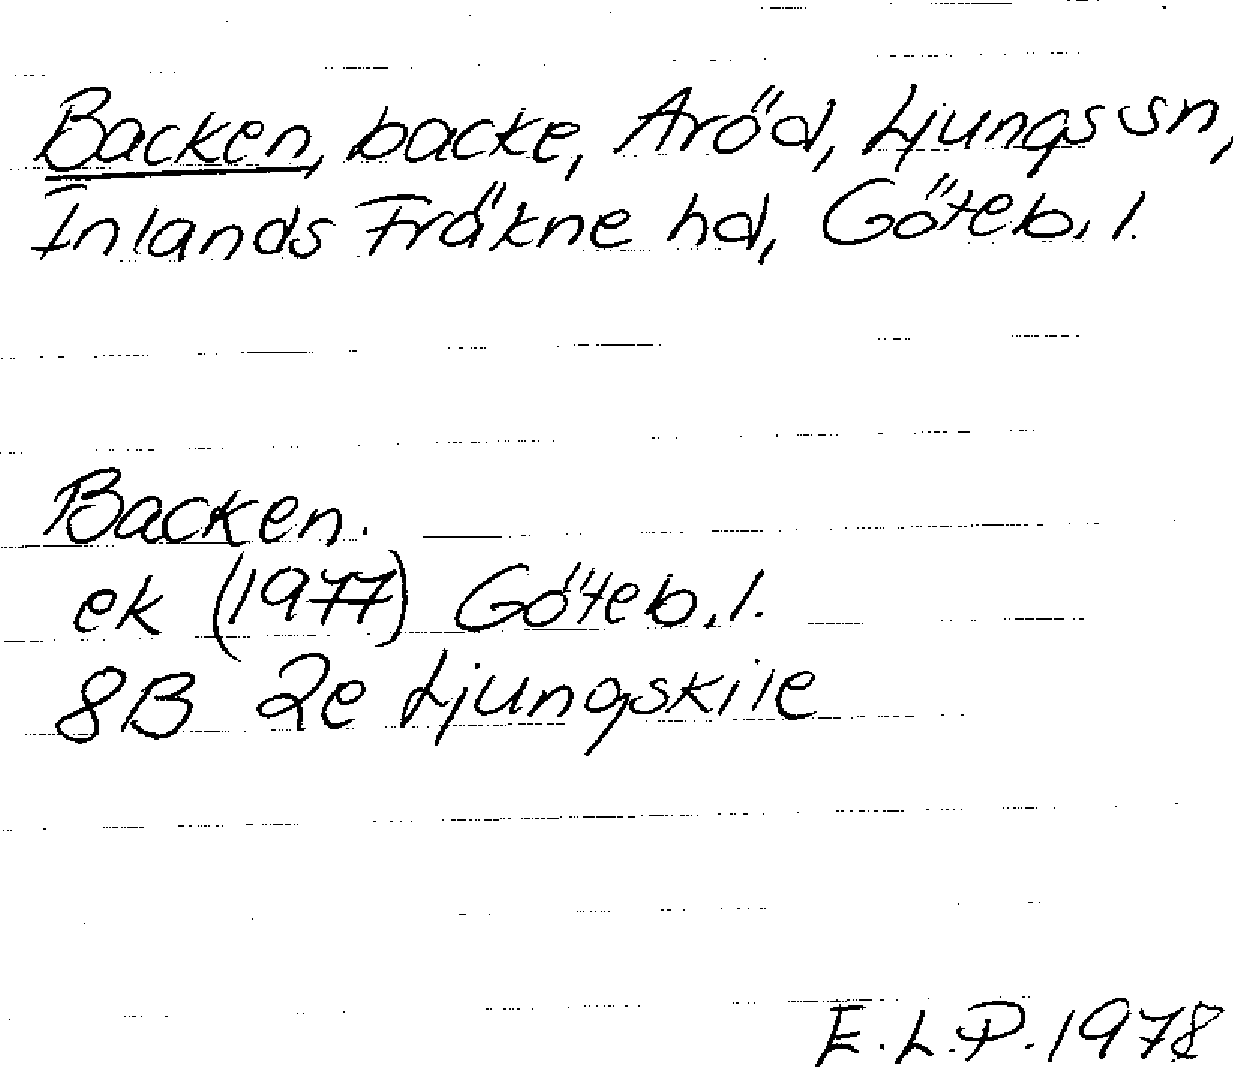 Backen, backe, Aröd, Ljungs sn,
Inlands Fräkne hd, Göteb. l.
Backen.
ek (1977) Göteb. l.
8B 2e Ljungskile
E.L.P. 1978